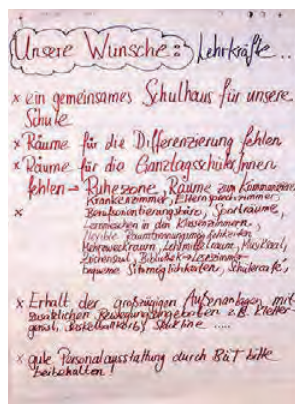 Unsere Wünsche: Lehrkräfte..
x ein gemeinsames Schulhaus für unsere
Schule
x Räume für die Differenzierung fehlen
x Räume für die GanztagsschülerInnen
fehlen → Ruhezone, Räume zum
Krankenzimmer, Elternsprechzimmer
x Berufsorientierungsbüro, Sporträume,
in den Klassenzimmern,
flexible
Mehrzweckraum, Lehrmittelraum, Musiksaal,
Zeichensaal, Bibliothek + Lesezimmer
bequeme Sitzmöglichkeiten, Schülercafé,
x Erhalt der großzügigen Außenanlagen mit
zusätzlichen Bewegungsangeboten z.B. Kletter-
gerüst, Basketballkorb, .....
x gute Personalausstattung durch BuT bitte
beibehalten!